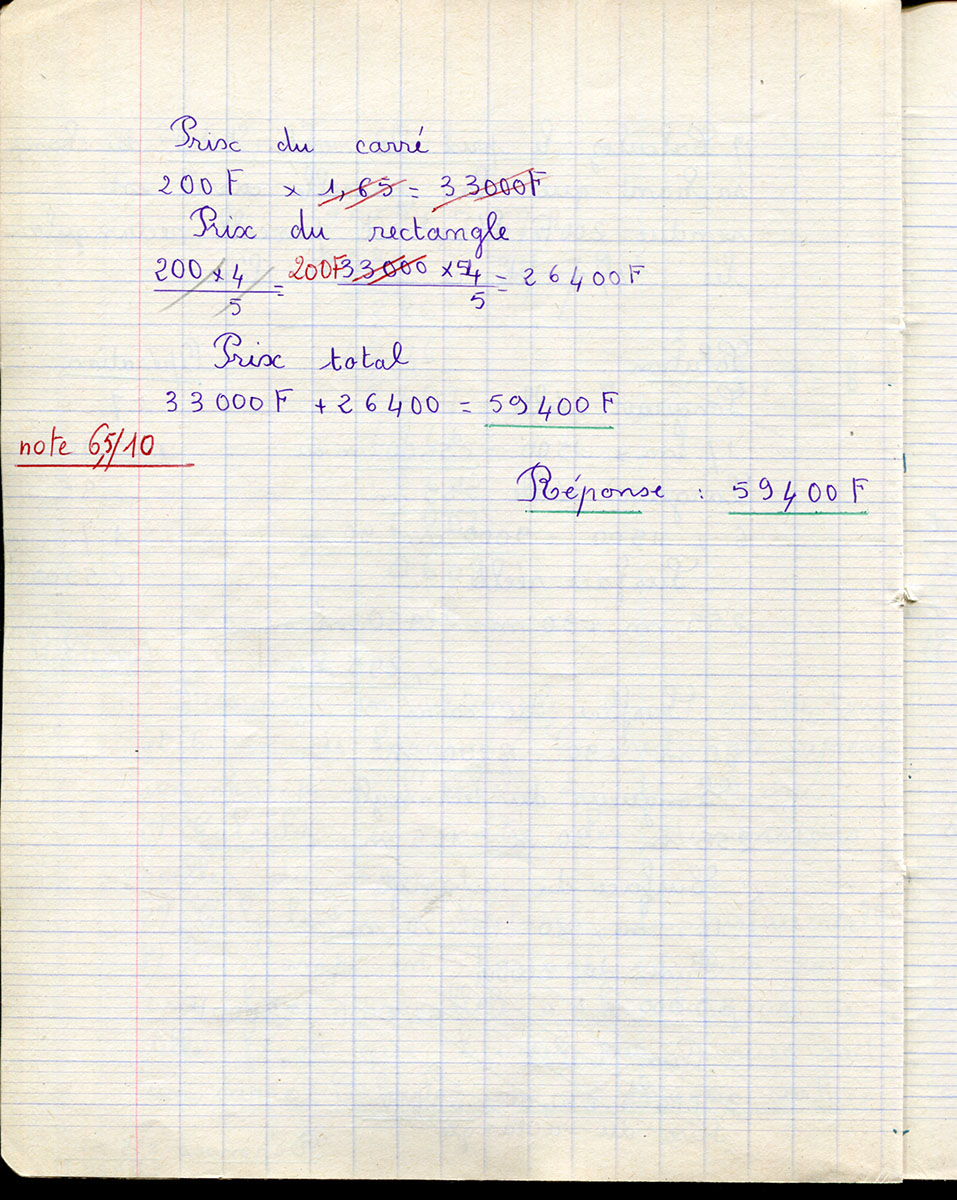 Prix du carré
200 F × 1,65 = 33000F
Prix du rectangle
200 × 4 / 5 = 200F 33000 × 4 / 5 = 26400F
Prix total
33000F + 26400 = 59400F
note 6,5/10
Réponse : 59400F